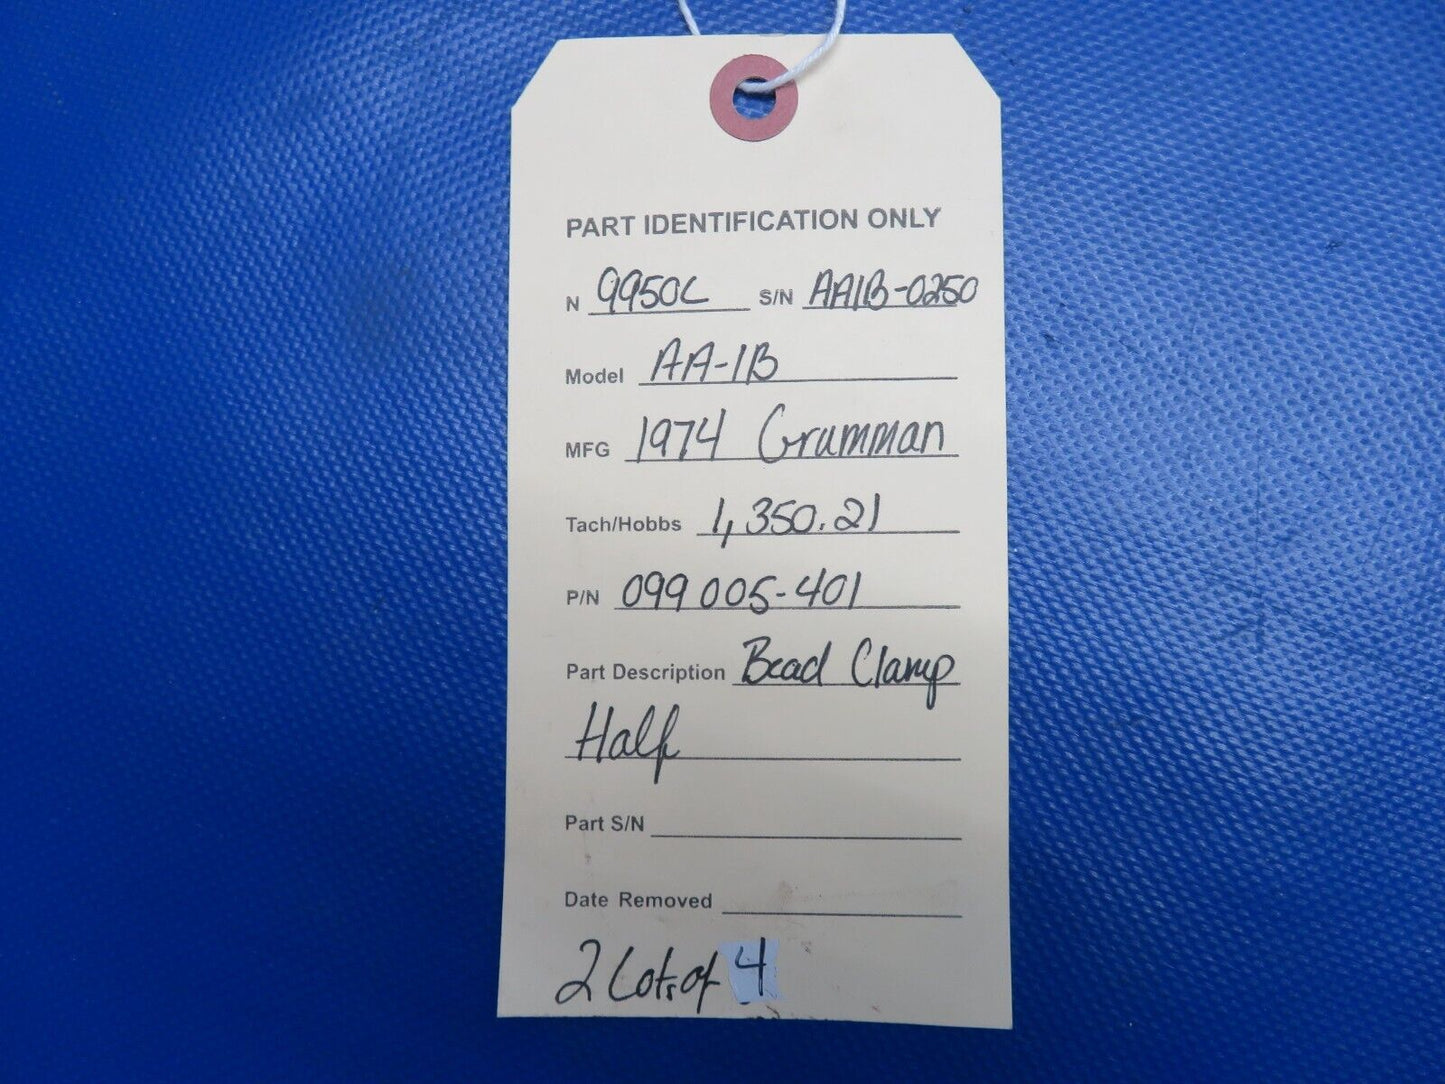 PART IDENTIFICATION ONLY
N 9950L S/N AA1B-0250
Model AA-1B
MFG 1974 Grumman
Tach/Hobbs 1,350.21
P/N 099005-401
Part Description Bead Clamp
Half
Part S/N
Date Removed
2 Lots of 4